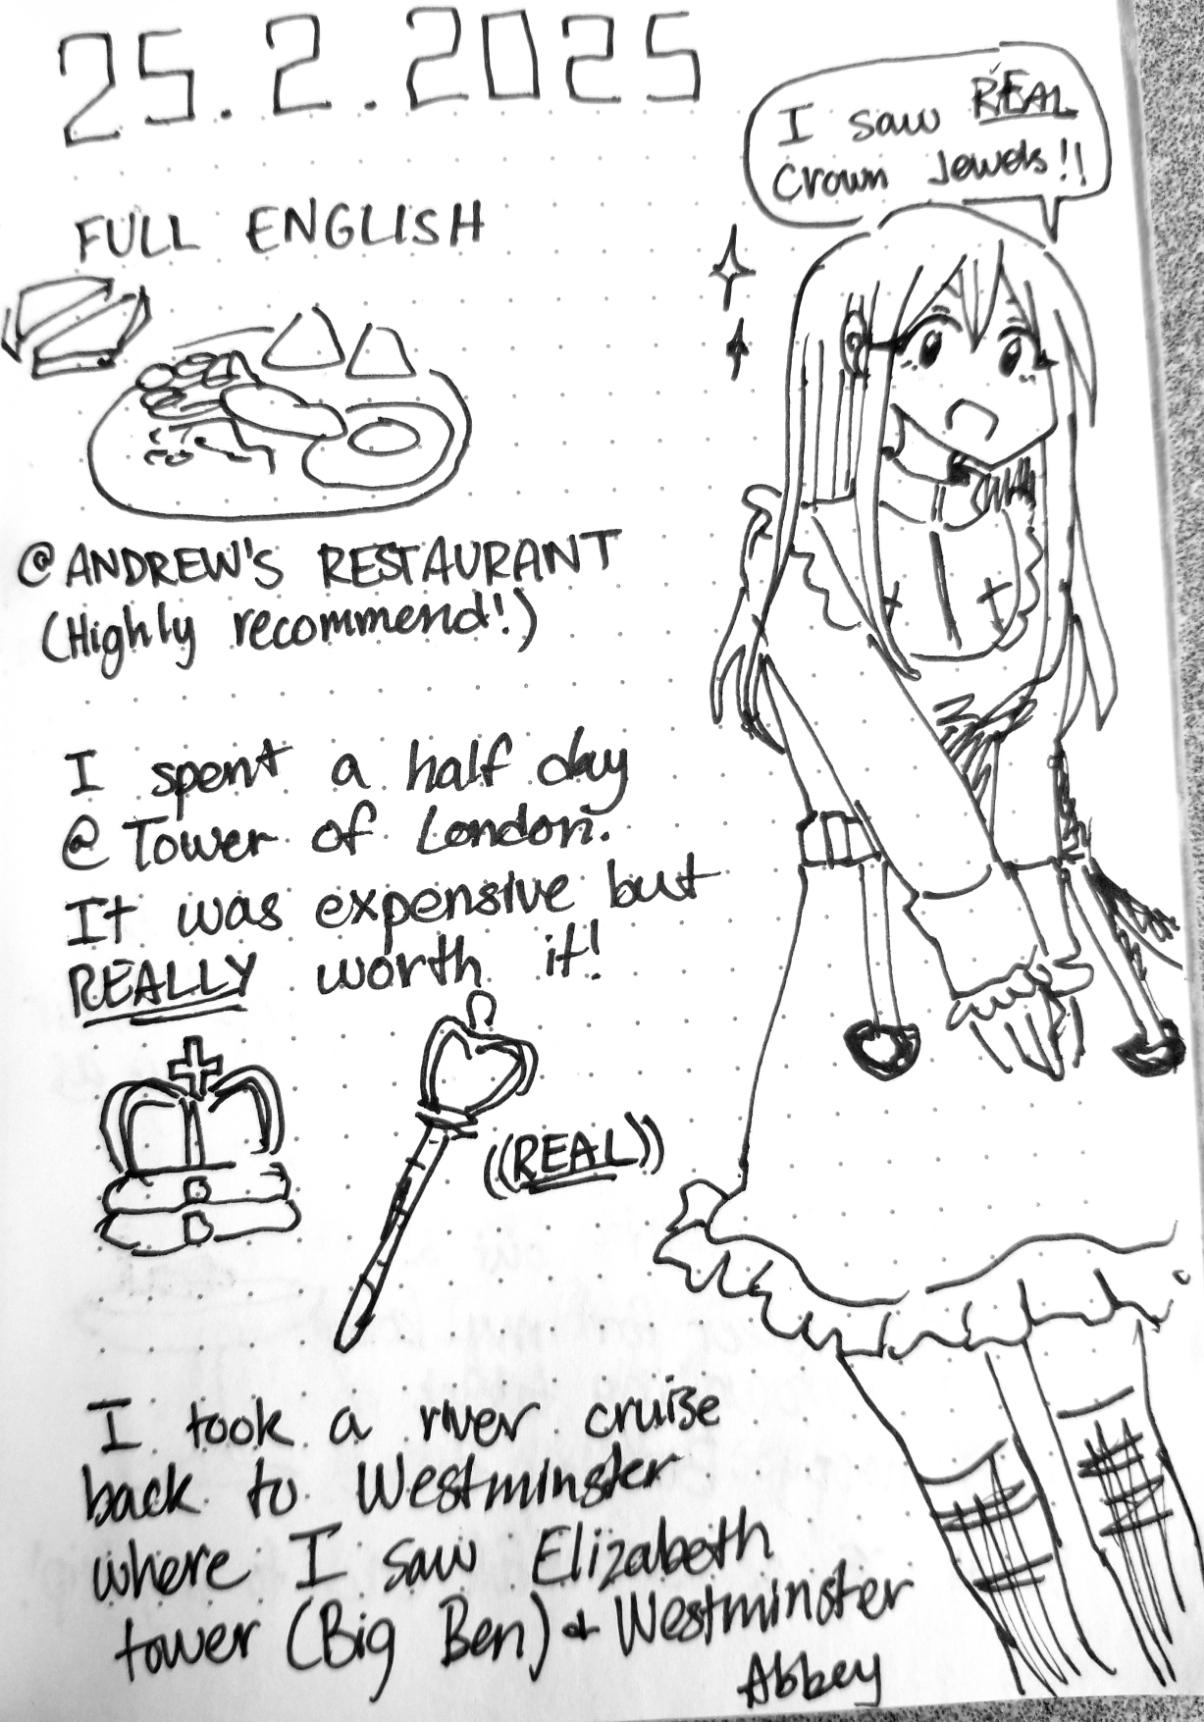 25.2.2025
I saw REAL
Crown Jewels!!
FULL ENGLISH
@ ANDREW'S RESTAURANT
(Highly recommend!)
I spent a half day
@ Tower of London.
It was expensive but
REALLY worth it!
((REAL))
I took a river cruise
back to Westminster
where I saw Elizabeth
tower (Big Ben) & Westminster
Abbey